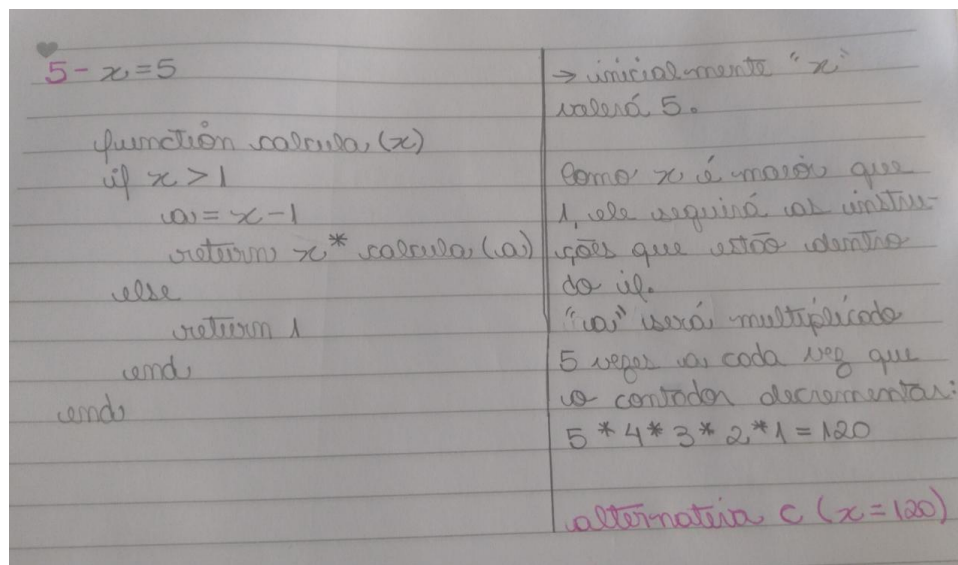 5 - x = 5
function calcula (x)
if x > 1
a = x - 1
return x * calcula (a)
else
return 1
end
end
→ inicialmente "x"
valerá 5.
Como x é maior que
1, ele seguirá as instru-
ções que estão dentro
do if.
"a" será multiplicado
5 vezes a cada vez que
o contador decrementar:
5 * 4 * 3 * 2 * 1 = 120
alternativa c (x = 120)